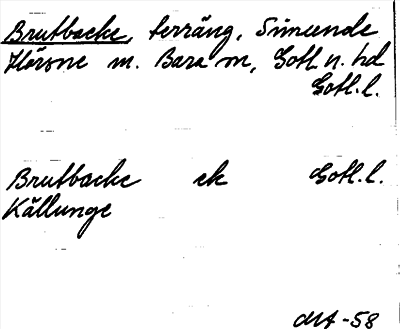 Brutbacke, terräng, Simunde
Hörsne m. Bara sn, Gotl. n. hd
Gotl. l.
Brutbacke ek Gotl. l.
Källunge
-58